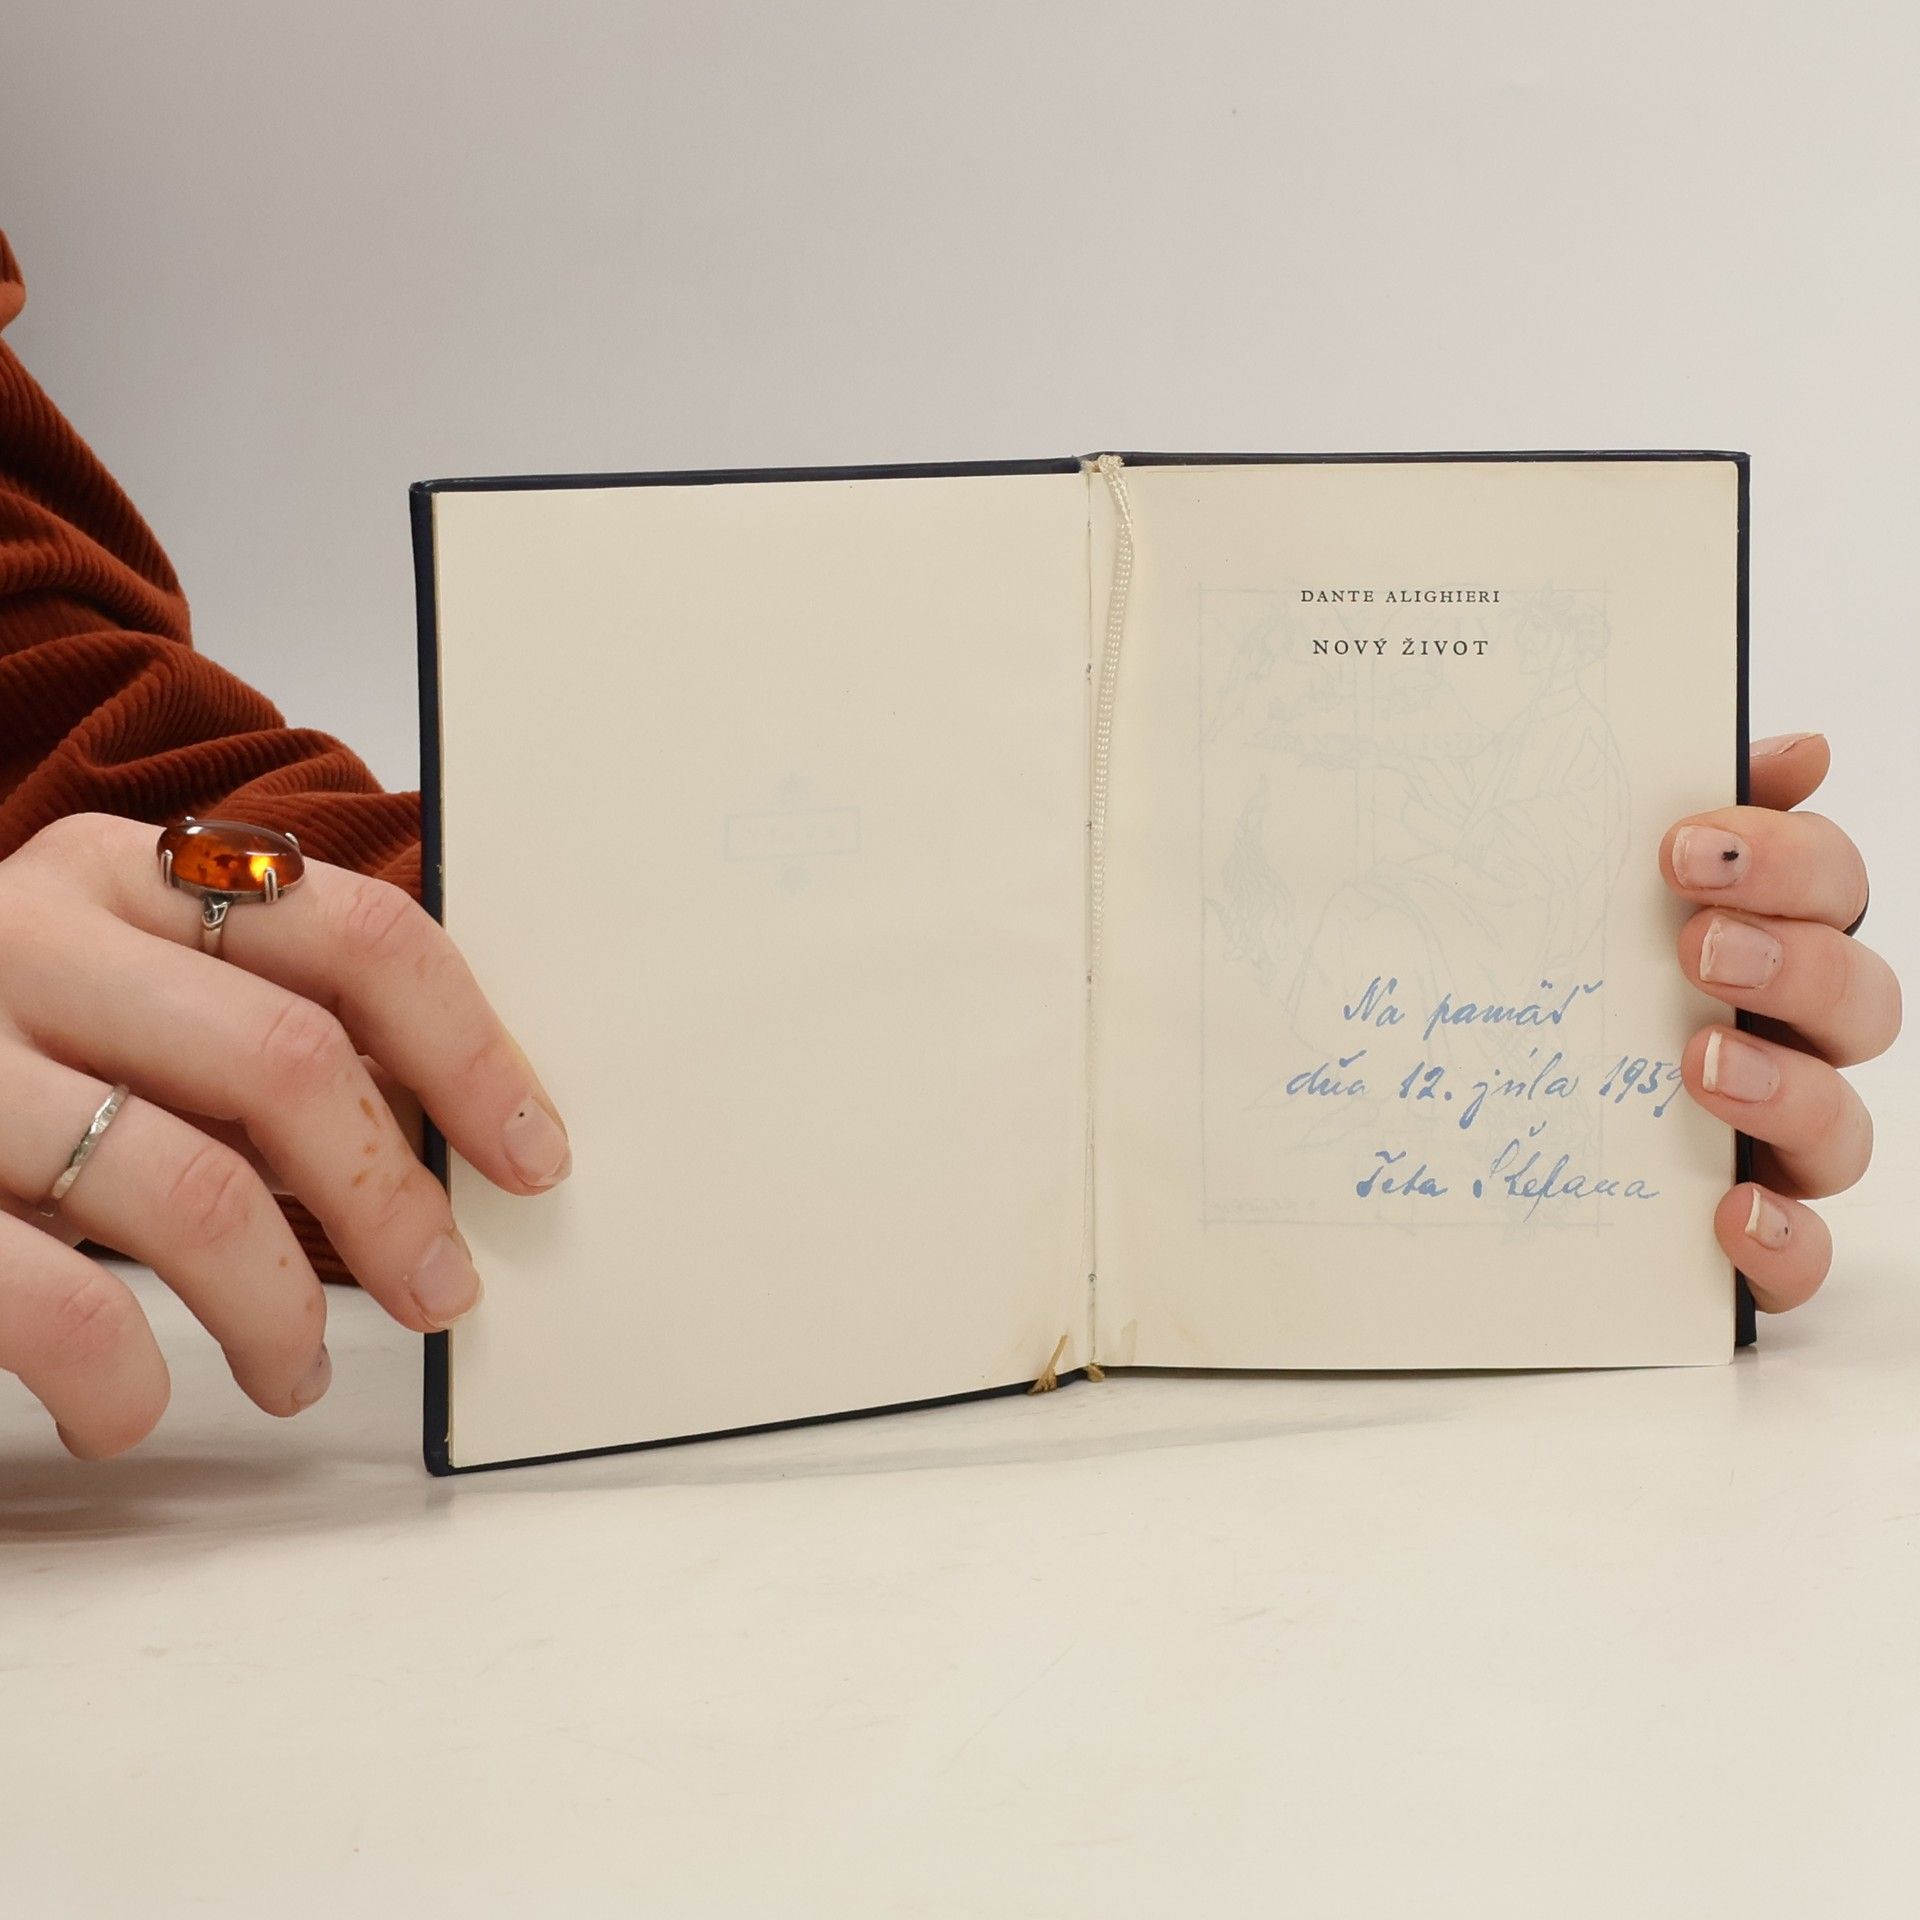 DANTE ALIGHIERI
NOVÝ ŽIVOT
Na pamäť
dňa 12. júla 1959
Teta Štefana